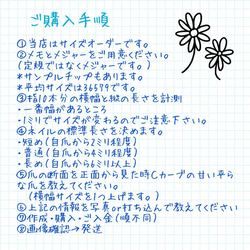 ご購入手順
①当店はサイズオーダーです。
②メモとメジャーをご用意ください。
(定規ではなくメジャーです。)
*サンプルチップもあります。
*平均サイズは36579です。
③指10本分の横幅と縦の長さを計測
・一番幅があるところ
・1ミリでサイズが変わるのでご注意下さい。
④ネイルの標準長さを決めます。
・短め(自爪から2ミリ程度)
・普通(自爪から4ミリ程度)
・長め(自爪から6ミリ以上)
⑤爪の断面を正面から見た時にカーブの甘い平ら
な爪を教えてください。
(横幅サイズを1つ上げます。)
⑥上記の情報を写真or打ち込んで教えてください
⑦作成・購入・ご入金(順不同)
⑧画像確認→発送